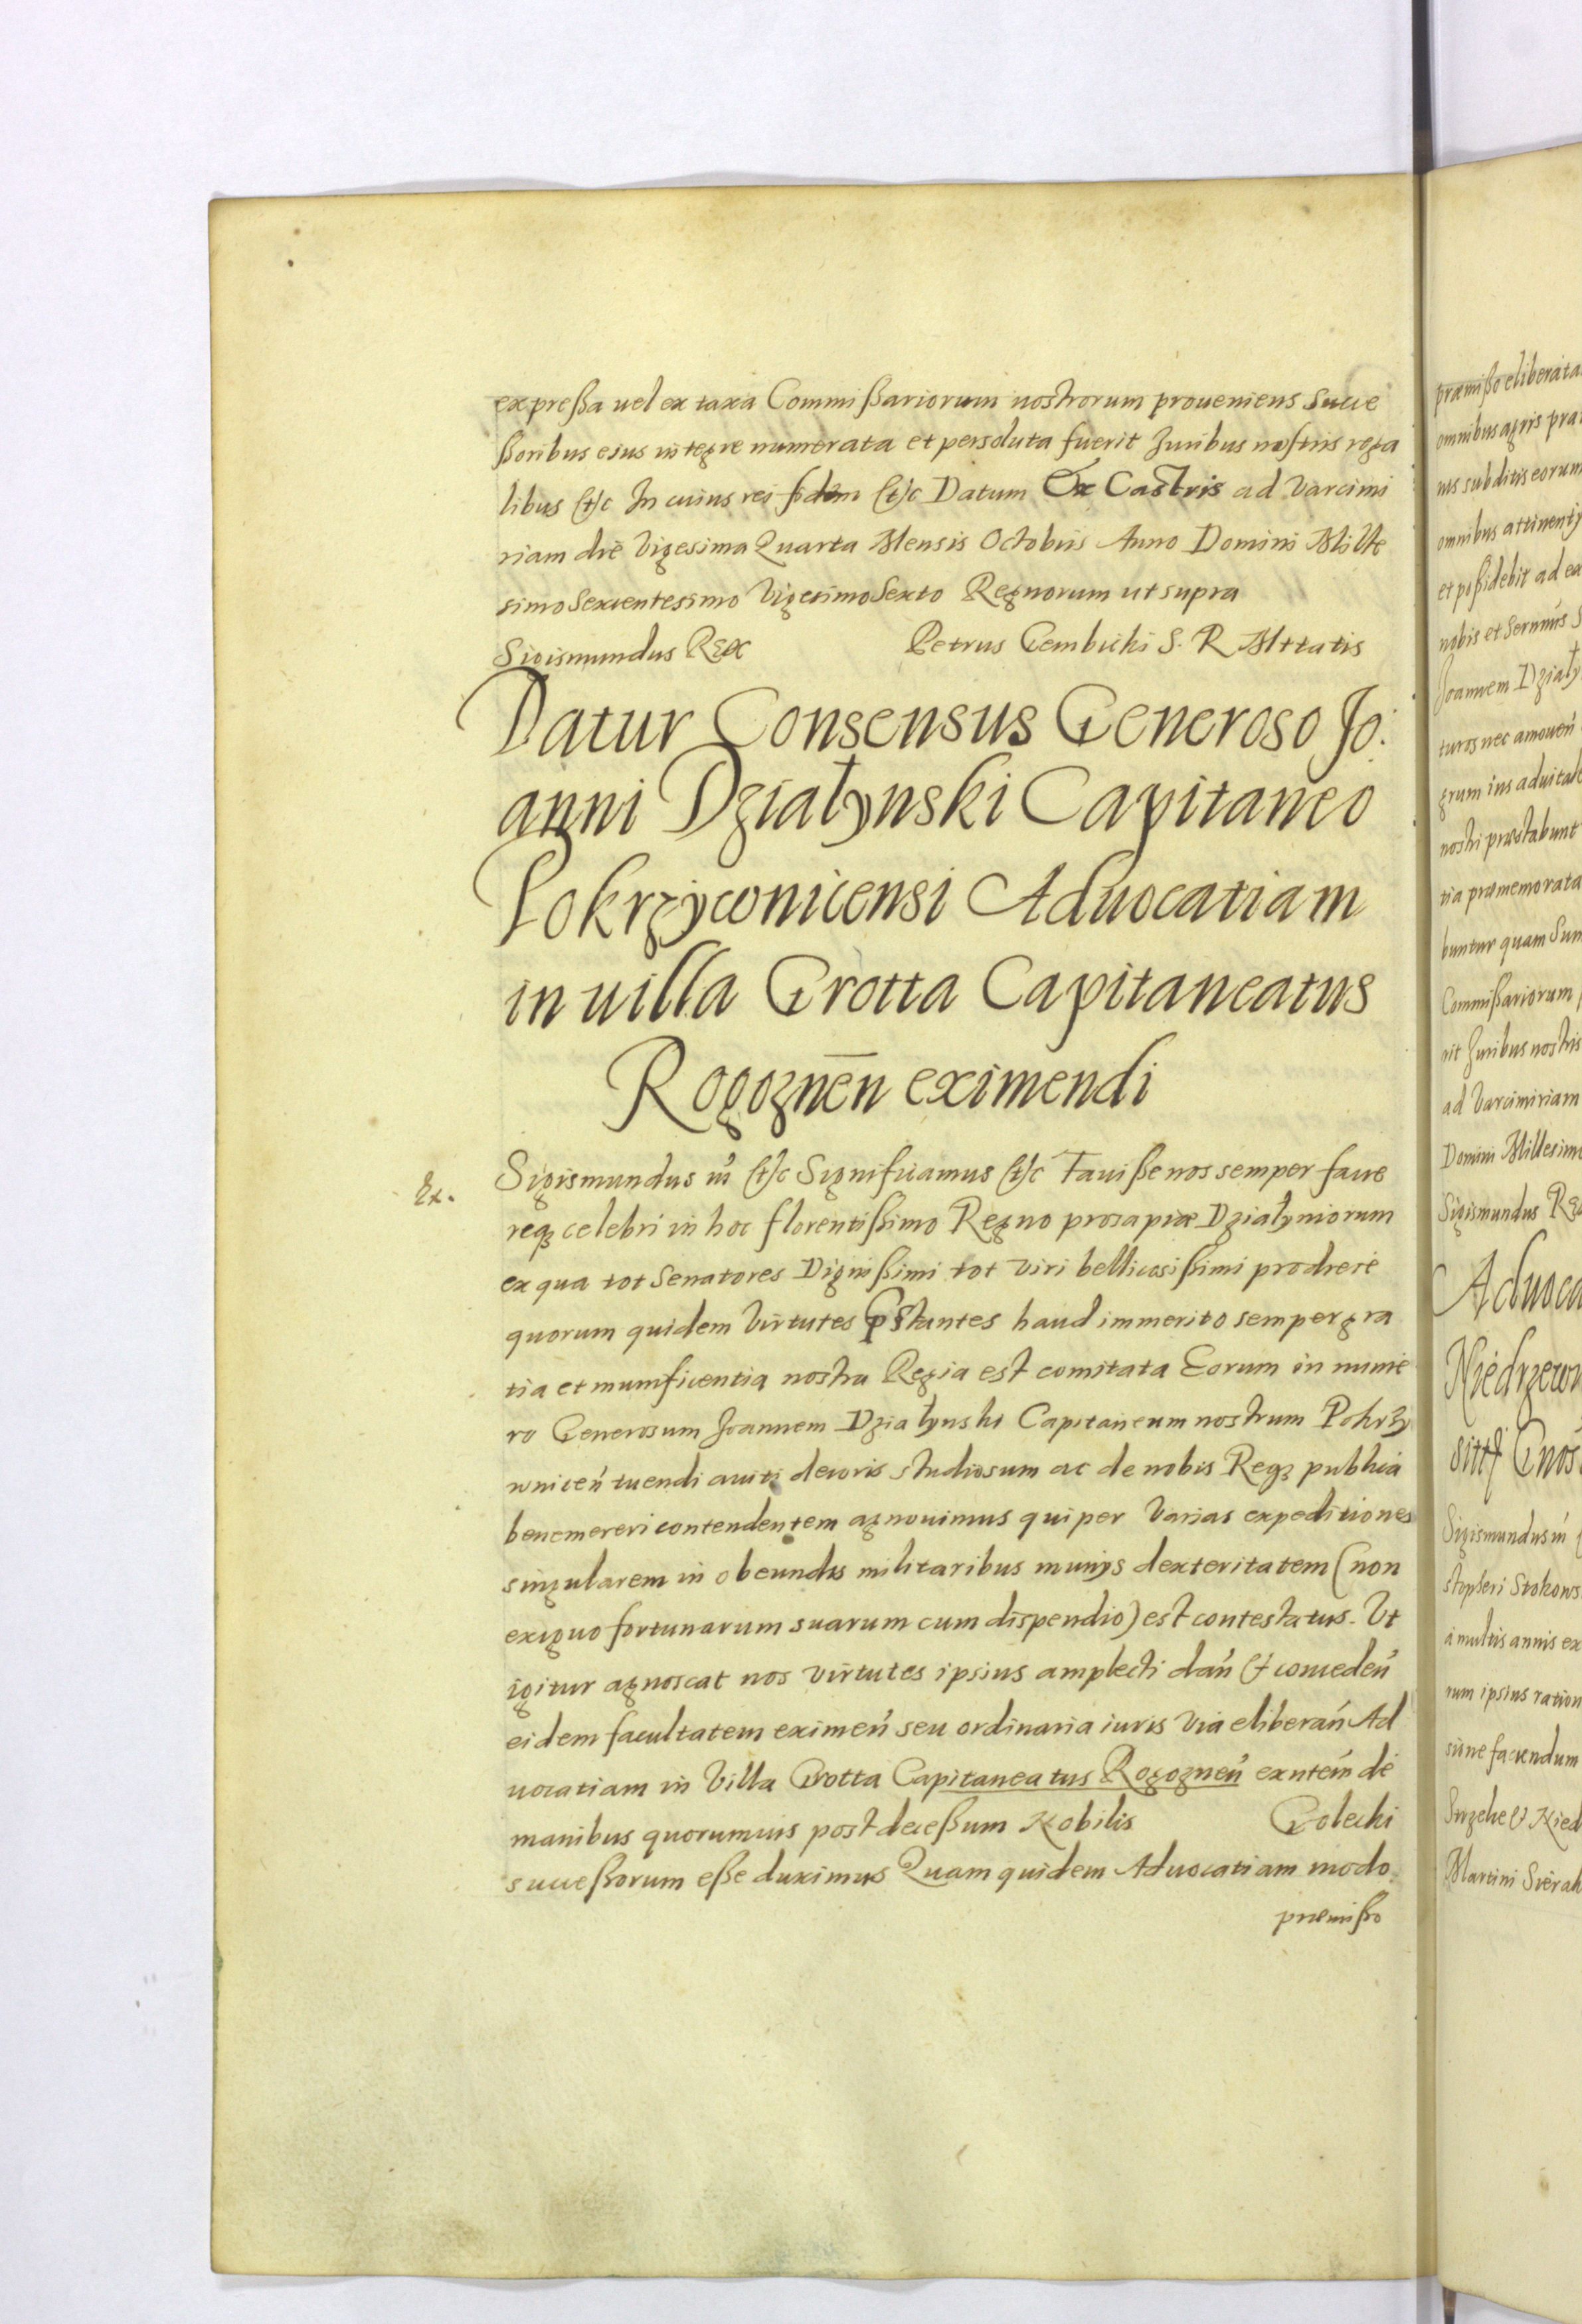 expreßa uel ex taxa Commißariorum nostrorum proueniens Succe
ßoribus eius integre numerata et persoluta fuerit Juribus nostris rega
libus (et)c In cuius rei fidem (et)c Datum Ex Castris ad Varcimi
riam die Vigesima Quarta Mensis Octobris Anno Domini Mille
simo Sexcentesimo Vigesimo Sexto Regnorum ut supra
Sigismundus Rex Petrus Gembicki S. R. Mttatis
Datur Consensus Generoso Jo:
anni Dzialynski Capitaneo
Pokrzywnicensi Aduocatiam
in uilla Grotta Capitaneatus
Rogoznen̄ eximendi
Ex.
Sigismundus iii (et)c Significamus (et)c Fauiße nos semper faue
req₃ celebri in hoc florentißimo Regno prosapiæ Dzialyniorum
ex qua tot Senatores Dignißimi tot Viri bellicosißimi prodiere
quorum quidem Virtutes Pr̄stantes haud immerito semper gra
tia et munificentia nostra Regia est comitata Eorum in nume
ro Generosum Joannem Dzialynski Capitaneum nostrum Pokrzy
wniceń tuendi auiti decoris studiosum ac de nobis Req₃ publica
benemereri contendentem agnouimus qui per Varias expeditiones
singularem in obeundis militaribus munijs dexteritatem (non
exiguo fortunarum suarum cum dispendio) est contestatus. Ut
igitur agnoscat nos Virtutes ipsius amplecti dań & concedeń
eidem facultatem eximeń seu ordinaria iuris Via eliberań Ad
uocatiam in Villa Grotta Capitaneatus Rogozneń exnteḿ de
manibus quorumuis post deceßum Nobilis Golecki
succeßorum eße duximus Quam quidem Aduocatiam modo
præmißo
præmißo eliberata
omnibus agris
nis subditis eorum
omnibus attinentij
et poßidebit ad
nobis et Sernmis
Joannem Dzialy
turos nec amoueń
grum ius aduitale
nostri præstabunt
tia præmemorata
buntur quam Sum
Commißariorum
rit Juribus nostris
ad Varcimiriam
Domini Millesimo
Sigismundus Re
Aduoca
Niedrzew
Sigismundus iii
Stokows
a multis annis ex
rum ipsius ration
sine faciendum
Martini Sierak